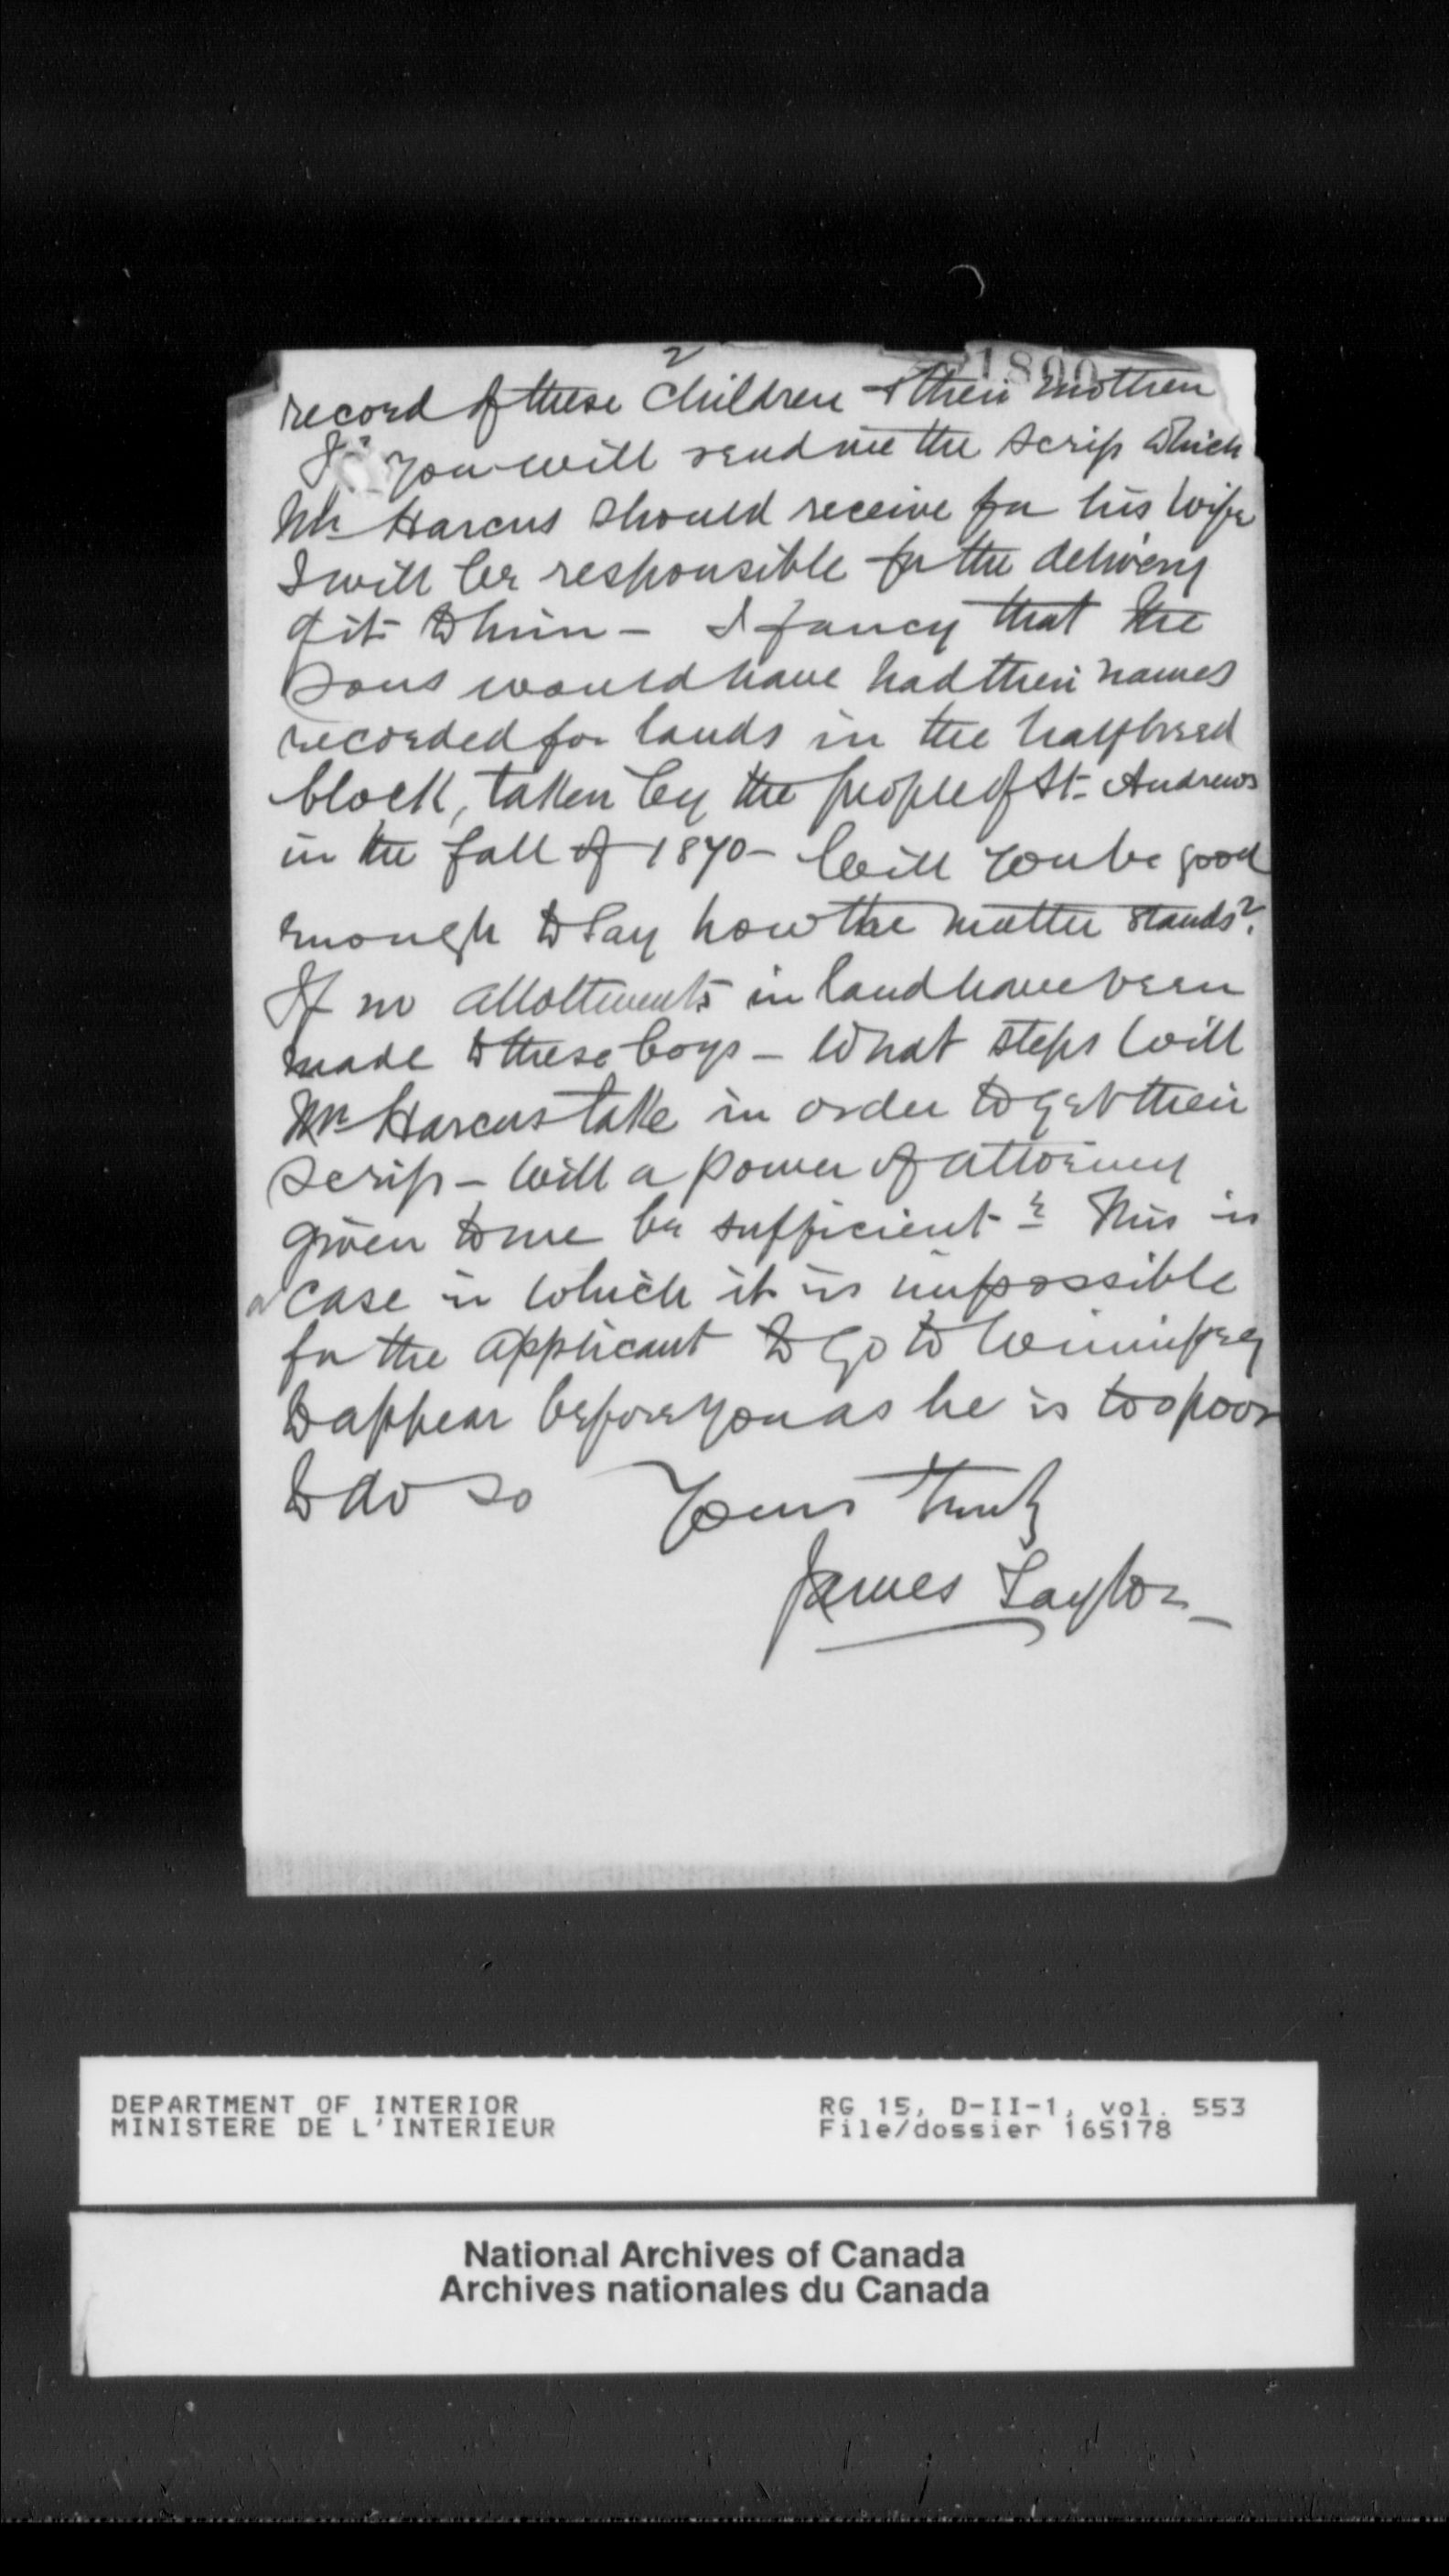 2
record of these children & their mother
If you will send me the scrip which
Mr Harcus should receive for his wife
I will be responsible for the delivery
of it to him - I fancy that the
sons would have had their names
recorded for lands in the halfbreed
block, taken by the people of St. Andrews
in the fall of 1870 - Will you be good
enough to say how the matter stands?
If no allottments in land have been
made to these boys - What steps will
Mr Harcus take in order to get their
scrip - Will a power of attorney
given to me be sufficient? This is
a case in which it is impossible
for the applicant to go to Winnipeg
to appear before you as he is too poor
to do so Yours truly
James Taylor
DEPARTMENT OF INTERIOR
MINISTERE DE L'INTERIEUR
RG 15, D-II-1, vol. 553
File/dossier 165178
National Archives of Canada
Archives nationales du Canada